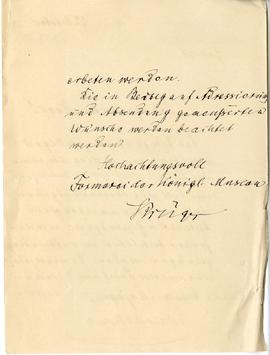 erbeten werden.
Die in Bezug auf Adressierung
und Absendung geäusserten
Wünsche werden beachtet
werden.
Hochachtungsvoll
Formerei der Königl. Museen
Krüger